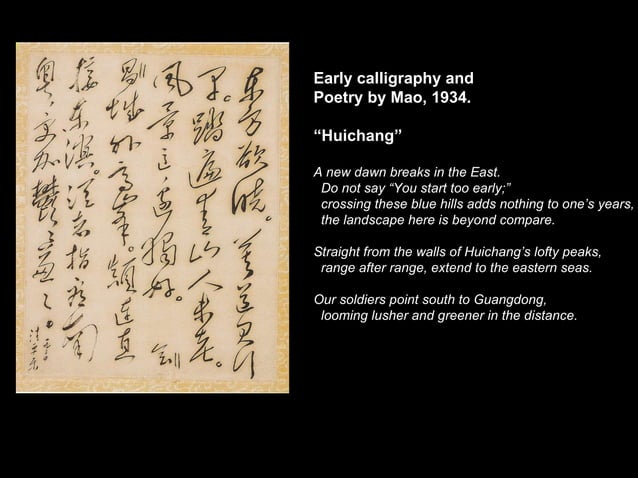 東方欲曉。莫道君行
早。踏遍青山人未老。
風景这边獨好。會
昌城外高峯。顛連直
接東溟。战士指看南
粵更加鬱鬱葱葱。
清平樂
Early calligraphy and
Poetry by Mao, 1934.
“Huichang”
A new dawn breaks in the East.
Do not say “You start too early;”
crossing these blue hills adds nothing to one’s years,
the landscape here is beyond compare.
Straight from the walls of Huichang’s lofty peaks,
range after range, extend to the eastern seas.
Our soldiers point south to Guangdong,
looming lusher and greener in the distance.